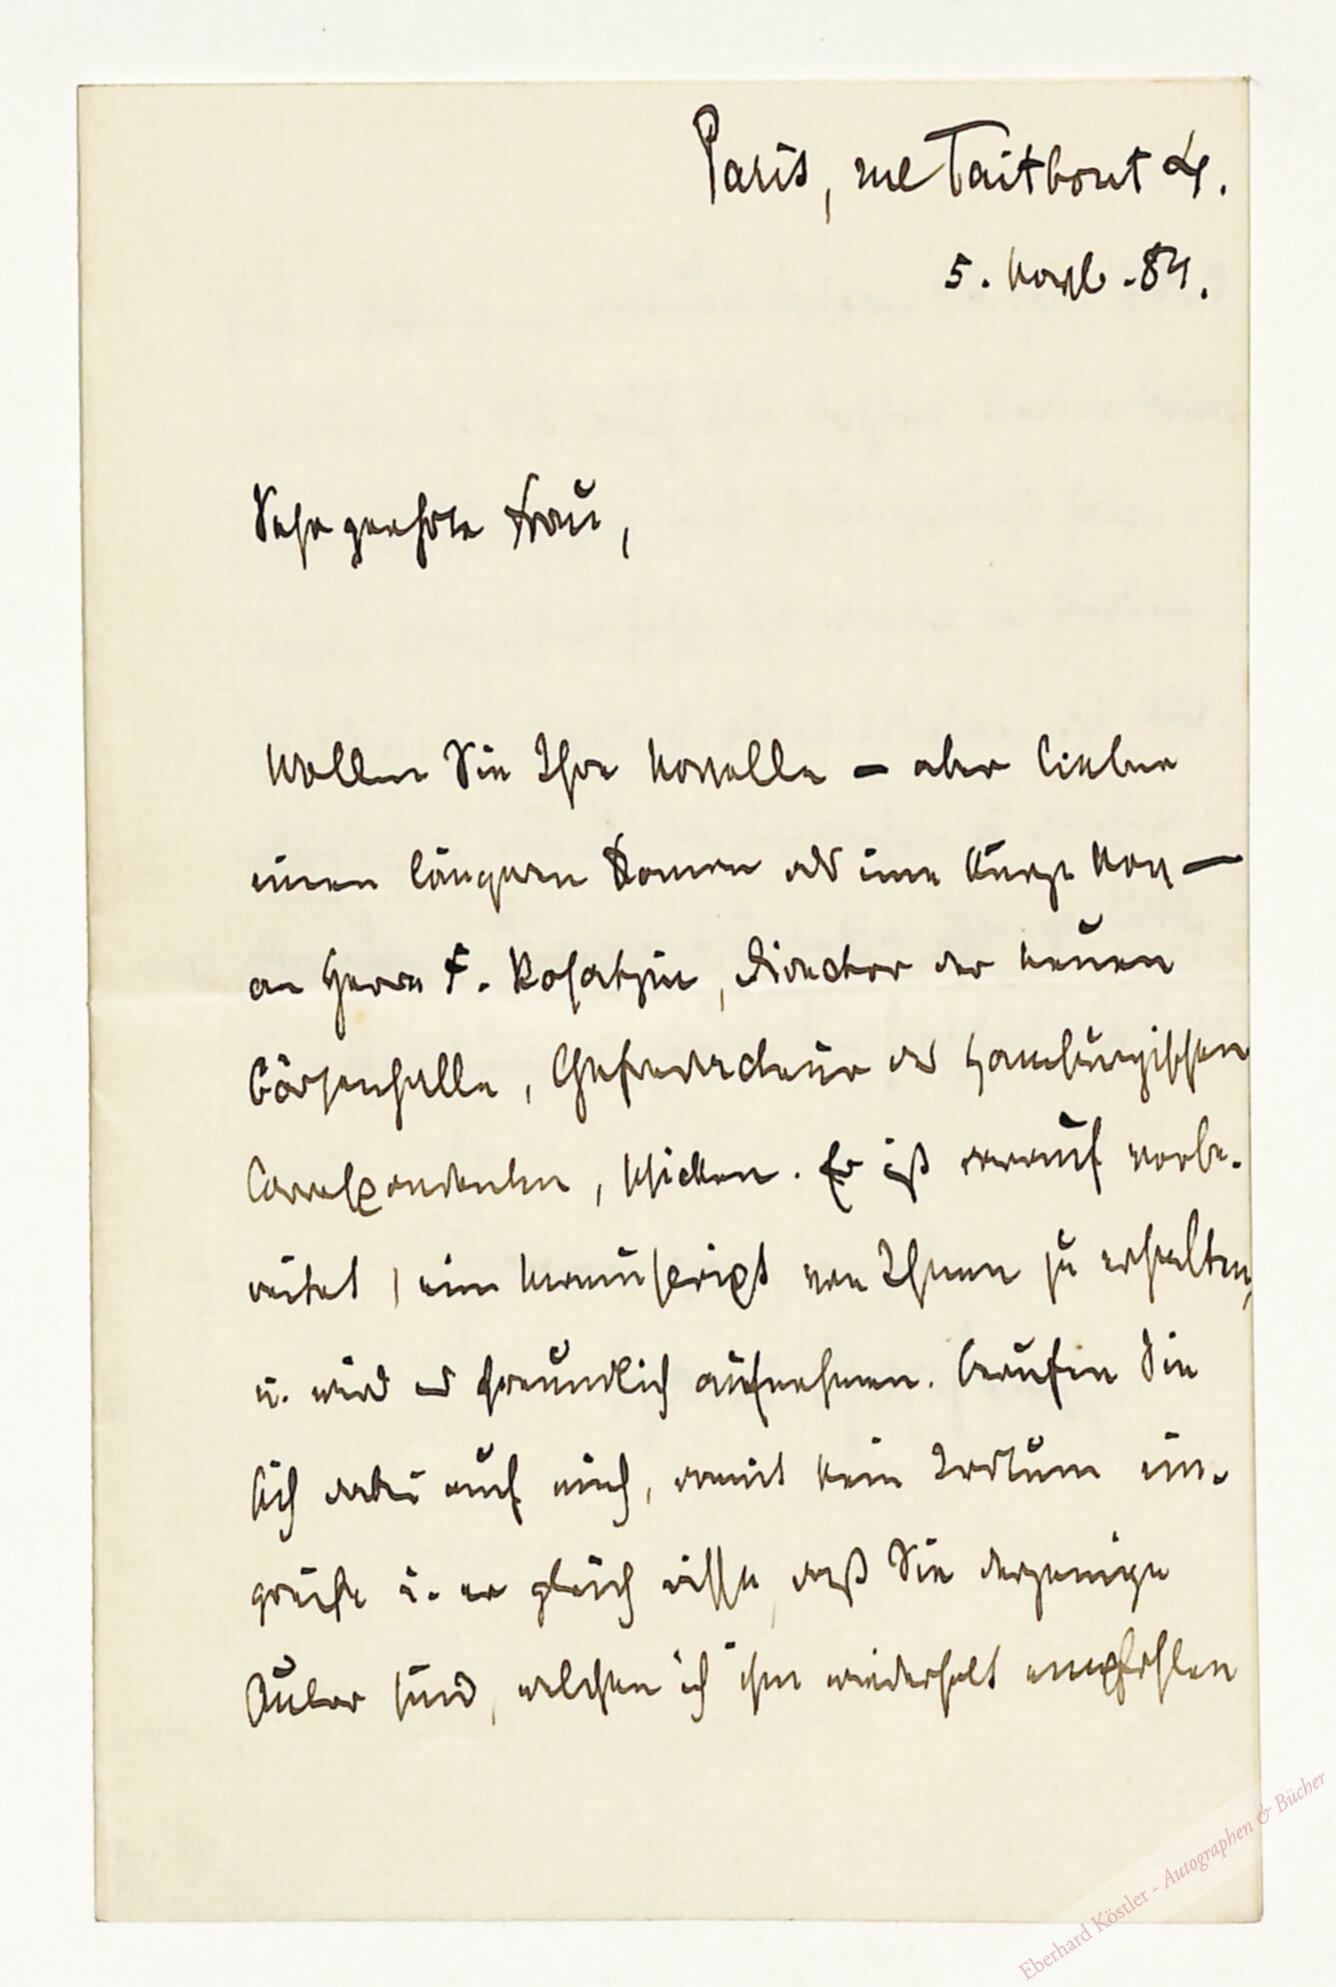 Paris, rue Taitbout 4.
5. Novb. 84.
Sehr geehrte Frau,
Wollen Sie Ihre Novelle – aber lieber
einen längern Roman als eine kurze Nov –
an Herrn F. Rosatzin, Director der neuen
Börsenhalle, Chefredacteur des Hamburgischen
Correspondenten, schicken. Er ist darauf vorbe-
reitet, ein Manuscript von Ihnen zu erhalten,
u. wird es freundlich aufnehmen. Berufen Sie
sich dabei auf mich, damit kein Irrtum ein-
greife u. er gleich wisse, daß Sie derjenige
Autor sind, welchen ich ihm wiederholt empfohlen
Eberhard Köstler - Autographen & Bücher